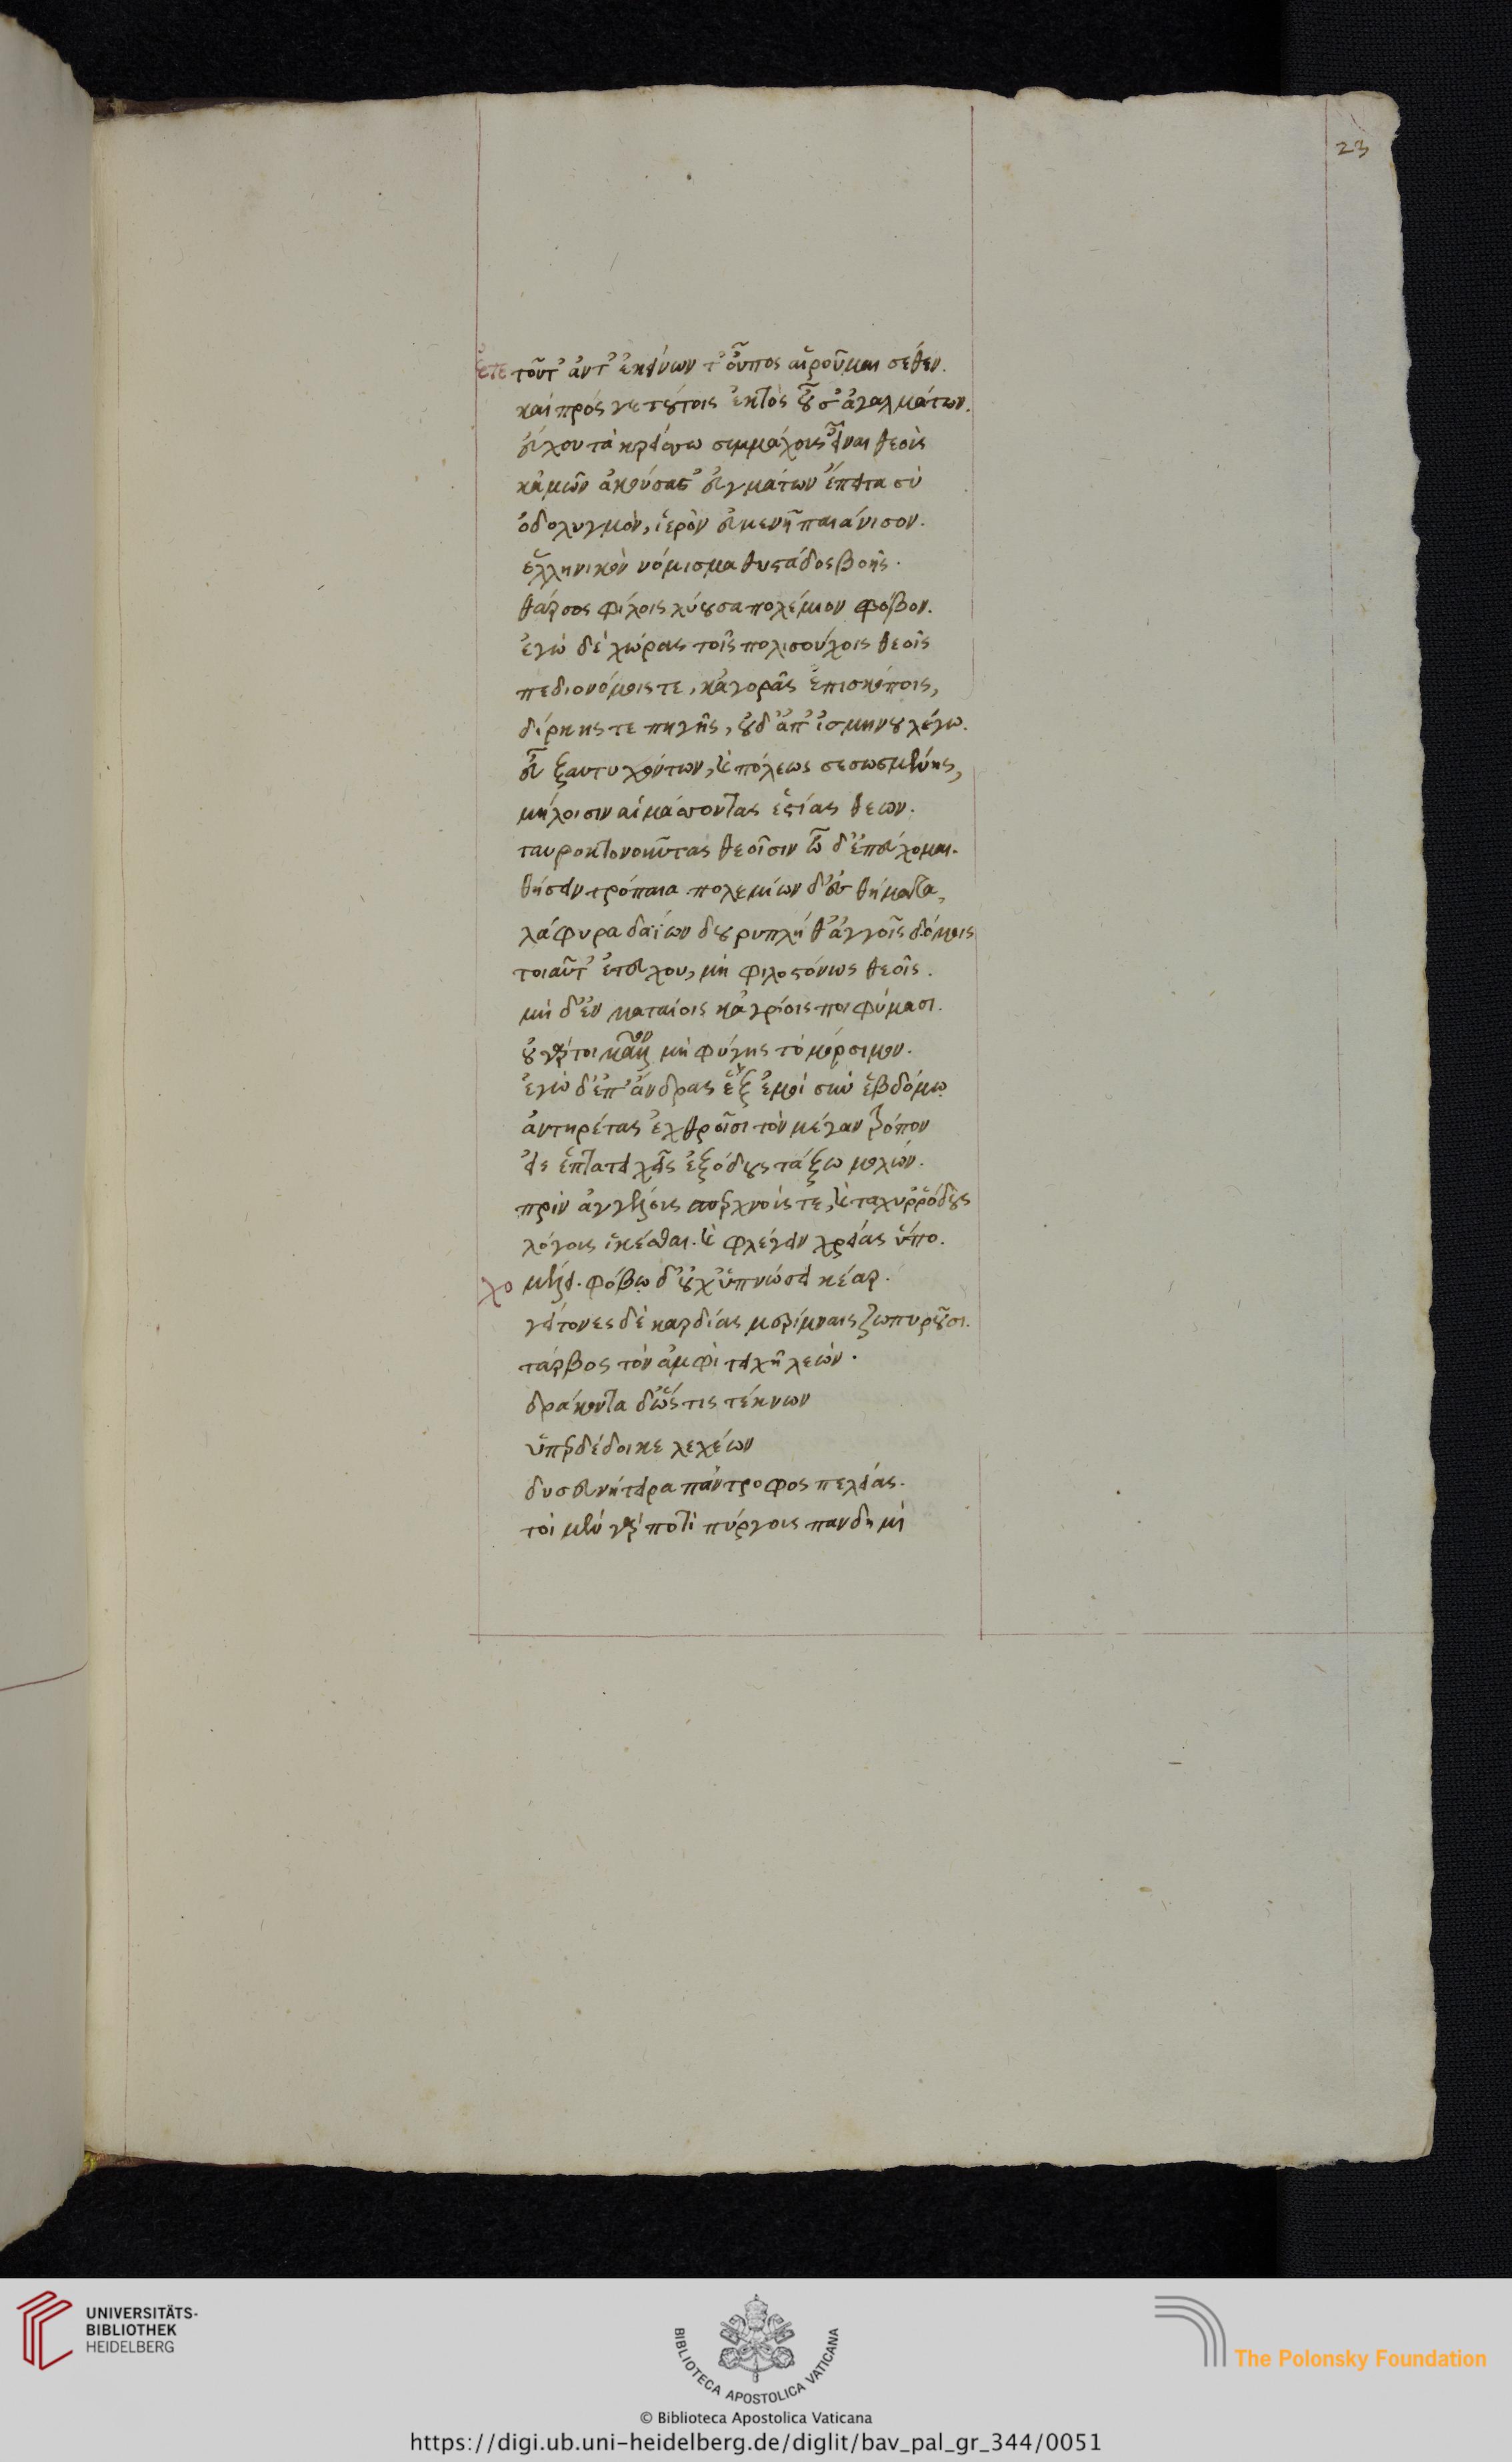 ἐτε τοῦτ' ἀντ' ἐκείνων τ' οὖπος αἱροῦμαι σέθεν.
καὶ πρός γε τούτοις ἐκτὸς οὖσ' ἀγαλμάτων.
εὔχου τὰ κρείσσω συμμάχοις εἶναι θεοὶς
κἀμῶν ἀκούσασ' εὐγμάτων ἔπειτα σὺ
ὀδολυγμὸν, ἱερὸν εὐμενῆ παιάνισον.
ἑλληνικὸν νόμισμα θυστάδος βοῆς.
θάρσος φίλοις λύουσα πολέμιον φόβον.
ἐγὼ δὲ χώρας τοῖς πολισούχοις θεοῖς
πεδιονόμοις τε, κἀγορᾶς ἐπισκόποις,
δίρκης τε πηγῆς, οὐδ' ἀπ' ἰσμηνοῦ λέγω.
εὖ ξαντυχόντων, καὶ πόλεως σεσωσμένης,
μήλοισιν αἱμάσσοντας ἑστίας θεων.
ταυροκτονοῦντας θεοῖσιν ὧδ' ἐπεύχομαι.
θήσειν τρόπαια πολεμίων δ' ἐσθήματα,
λάφυρα δαΐων δουρυπλήθ' ἁγνοῖς δόμοις
τοιαῦτ' ἐπεύχου, μὴ φιλοστόνως θεοῖς.
μὴ δ' ἐν ματαίοις κἀγρίοις ποιφύμασι.
οὐ γάρ τοι μᾶλλον μὴ φύγης τὸ μόρσιμον.
ἐγὼ δ' ἐπ' ἄνδρας ἓξ ἐμοὶ σὺν ἑβδόμῳ
ἀντηρέτας ἐχθροῖσι τὸν μέγαν τρόπον
εἰς ἑπτατειχεῖς ἐξόδους τάξω μολών.
πρὶν ἀγγέλοις σπερχνοίς τε, καὶ ταχυρρόθους
λόγοις ἱκέσθαι. καὶ φλέγειν χρείας ὕπο.
χο μέλει. φόβῳ δ' οὐχ ὑπνώσει κέαρ.
γείτονες δὲ καρδίας μερίμναις ζωπυροῦσι.
τάρβος τὸν ἀμφὶ τειχῆ λεών.
δράκοντα δ' ὥς τις τέκνων
ὑπερδέδοικε λεχέων
δυσευνήτειρα πάντροφος πελείας.
τοὶ μὲν γὰρ ποτὶ πύργοις πανδημὶ
23
UNIVERSITÄTS-
BIBLIOTHEK
HEIDELBERG
BIBLIOTECA APOSTOLICA VATICANA
The Polonsky Foundation
© Biblioteca Apostolica Vaticana
https://digi.ub.uni-heidelberg.de/diglit/bav_pal_gr_344/0051